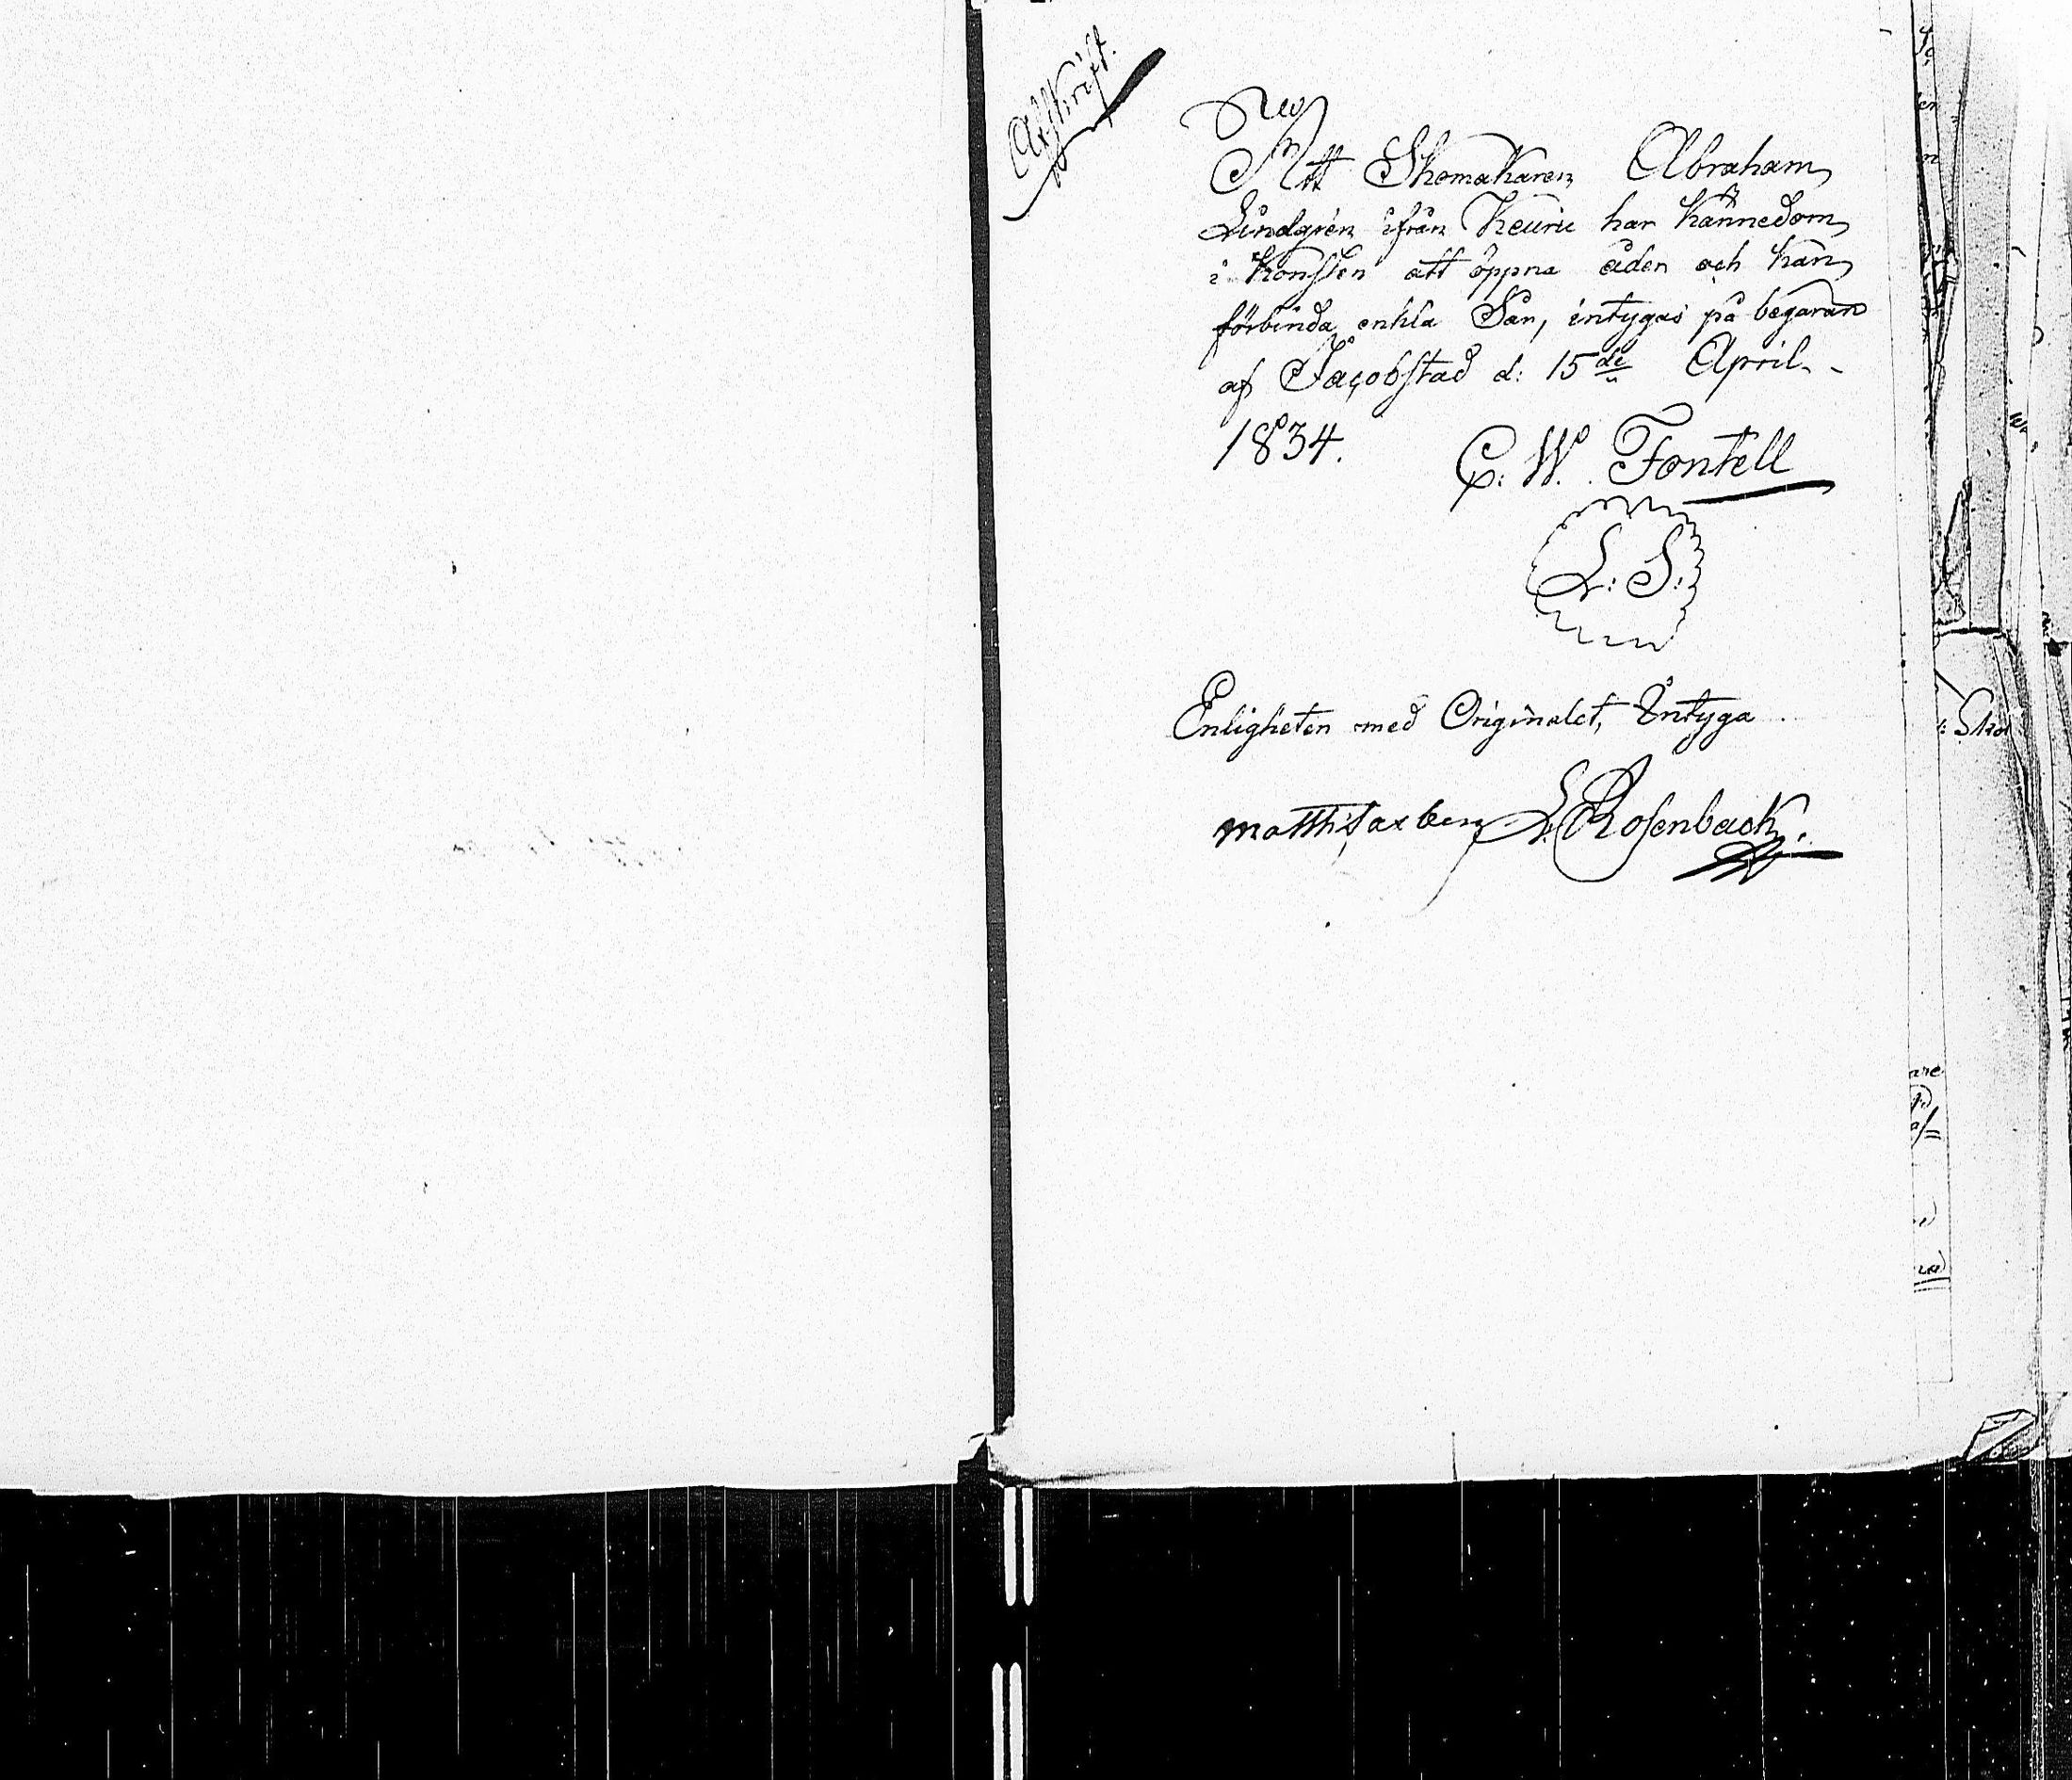 Afskrift.
Att Skomakaren Abraham
Lindgrén ifrån Keuru har kännedom
i konsten att öppna åder och kan
förbinda enkla Sår, intygas på begäran
af Jacobstad d: 15de April
1834.
C. W. Fontell
L: S:
Enligheten med Originalet, Intyga
Matths L. Rosenback.